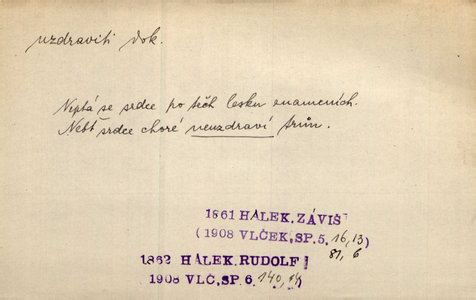 uzdraviti dok.
Neptá se srdce po těch lesku znameních.
Neb srdce choré neuzdraví trůn.
1861 HÁLEK, ZÁVIŠ
(1908 VLČEK, SP. 5, 16, 13)
81, 6
1862 HÁLEK, RUDOLF I
1908 VLČ, SP. 6, 140,